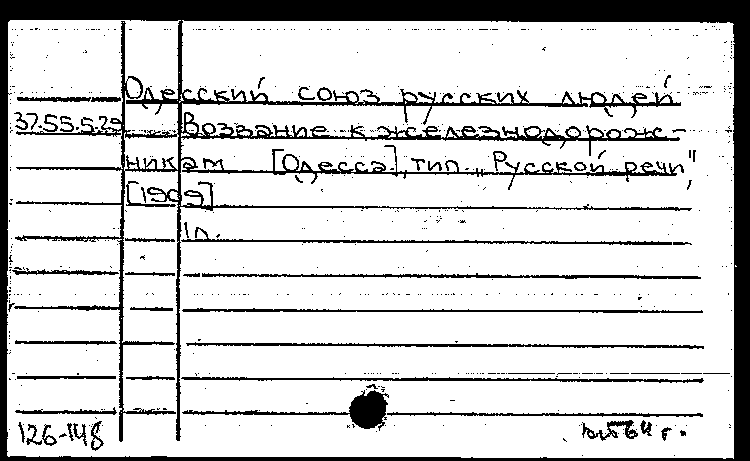 Одесский союз русских людей
37.55.5.29 Воззвание к железнодорож-
никам [Одесса], тип. „Русской речи",
[1909]
1л.
126-148
64 г.